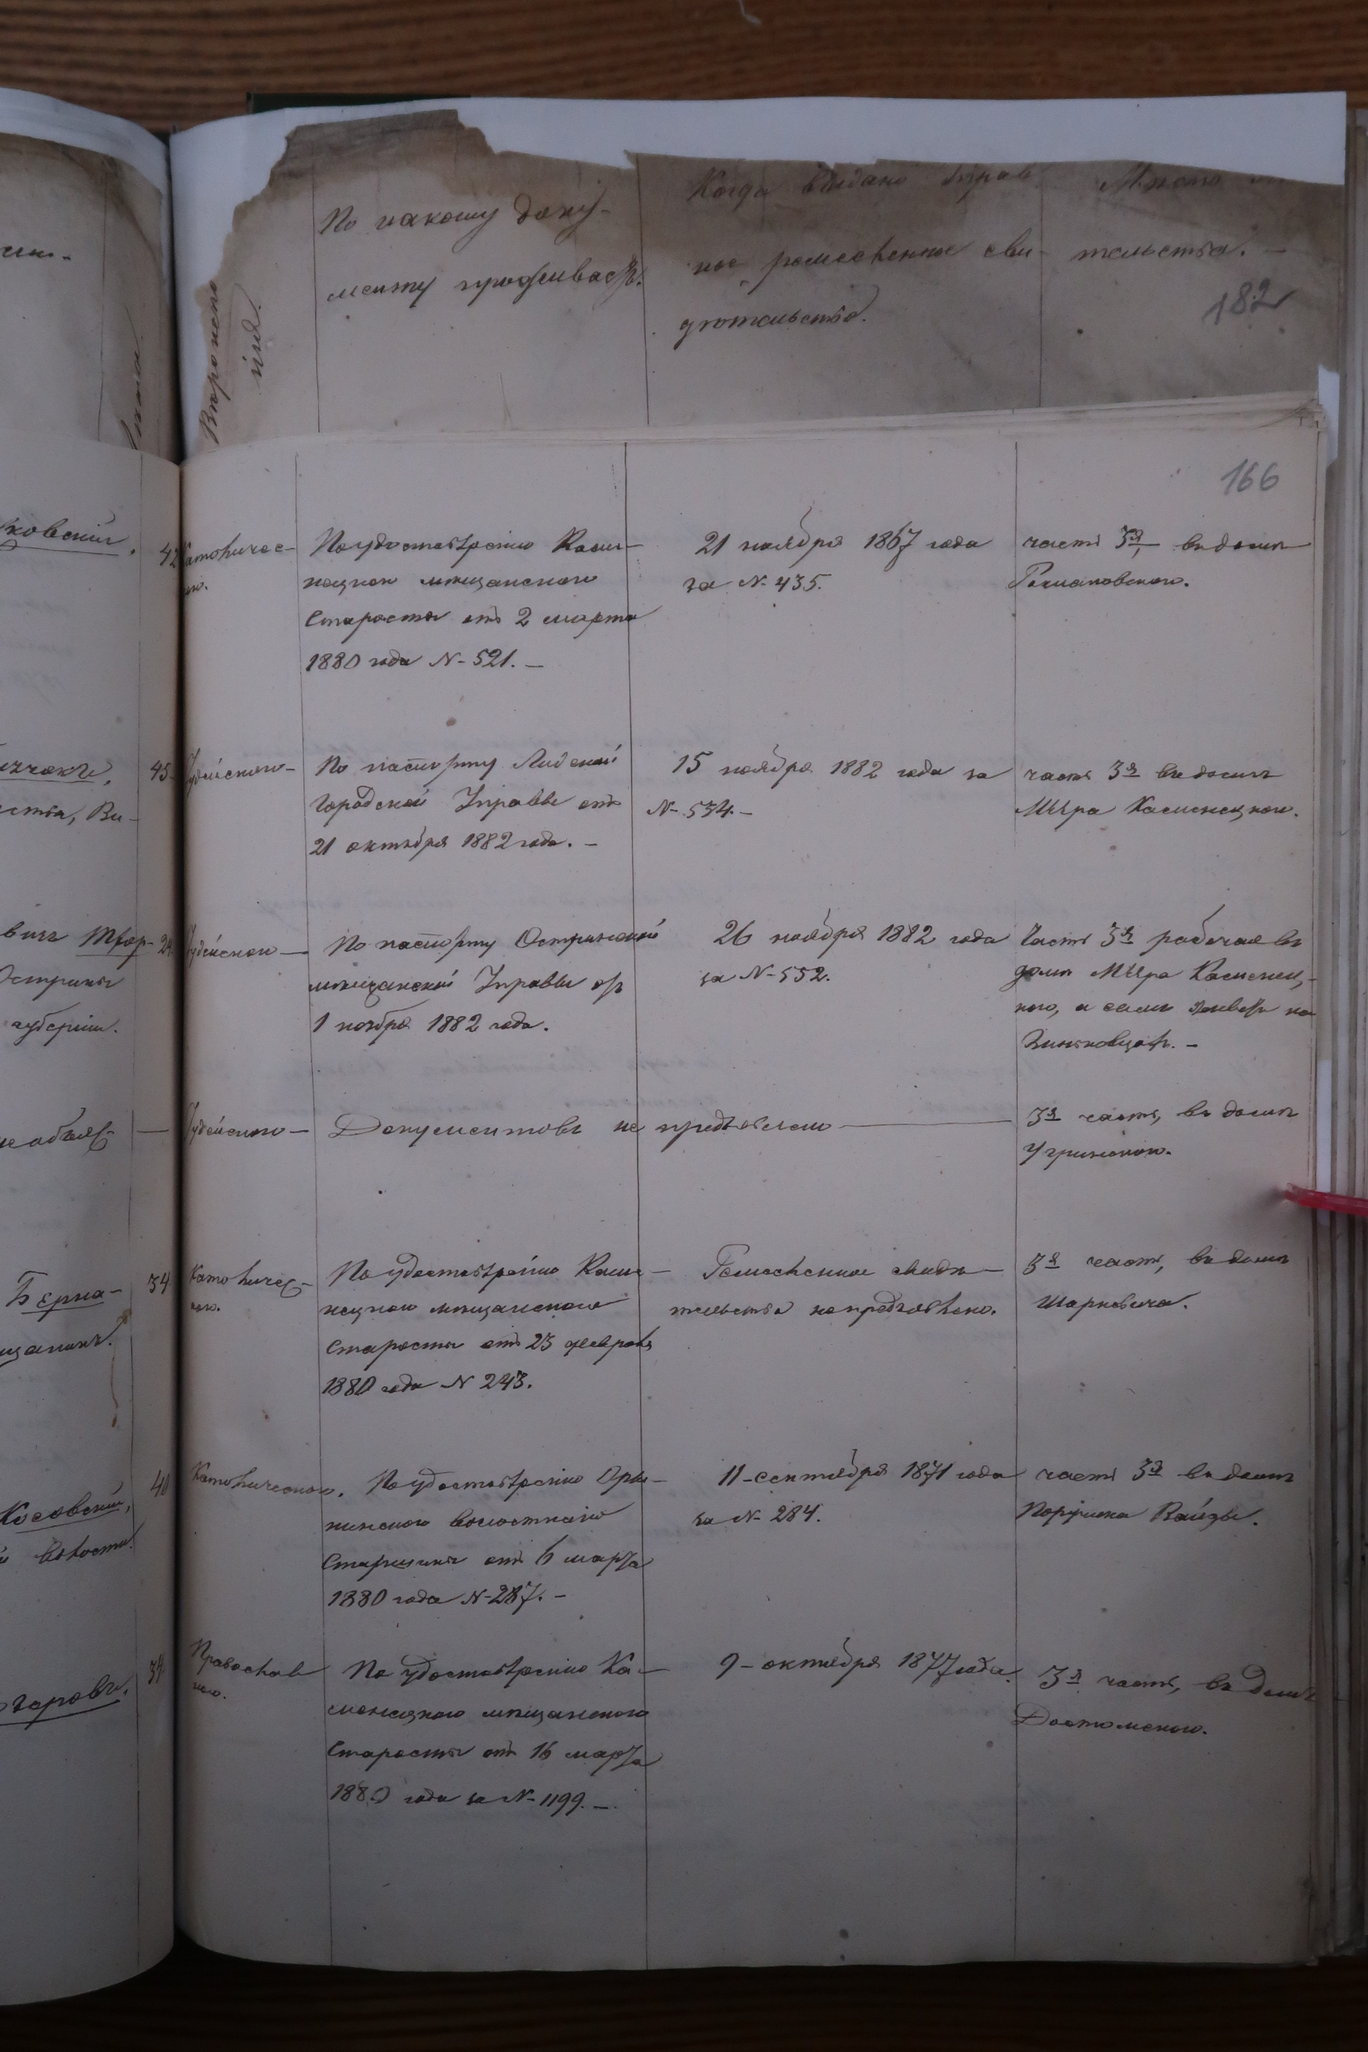 По какому доку-
менту проживаетъ.
Когда выдано управ
ное ремесленное сви-
дѣтельство.
Мѣсто
тельства. —
182
Вѣроиспо
166
ковскій.
42
Католичес-
ко.
По удостовѣренію Каме-
нецкого мѣщанского
Старосты отъ 2 марта
1880 года № 521. —
21 ноября 1867 года
за № 435.
часть 3я, въ домѣ
45
Іудейского —
По паспорту Лидской
Городской Управы отъ
21 октября 1882 года. —
15 ноября 1882 года за
№ 534. —
часть 3я въ домѣ
Мыра Каменецкого.
ства, Ви-
24
Іудейского —
По паспорту Остринской
мѣщанской Управы отъ
1 ноября 1882 года.
26 ноября 1882 года
за № 552.
Часть 3я рабочая въ
домѣ Мыра Каменец-
кого, а самъ живетъ на
Зиньковцахъ. —
Острины
губерніи.
Іудейского —
Документовъ не предъявлено
3я часть, въ домѣ
Угринского.
Берна-
34
Католичес-
кого.
По удостовѣренію Каме-
нецкого мѣщанского
Старосты отъ 23 февраля
1880 года № 243.
Ремесленное свидѣ-
тельство не предъявлено.
3я часть, въ домѣ
Шаркевича.
щанинъ.
40
Католического.
По удостовѣренію Оры-
нинского волостного
Старшины отъ 6 марта
1880 года № 287. —
11 — сентября 1871 года
за № 284.
часть 3я въ домѣ
Порфирія Вайзы.
Косовскій,
волости.
34
Православ
ного.
По удостовѣренію Ка-
менецкого мѣщанского
Старосты отъ 16 марта
1880 года за № 1199. —
9 — октября 1877 года.
3я часть, въ домѣ
Достомского.